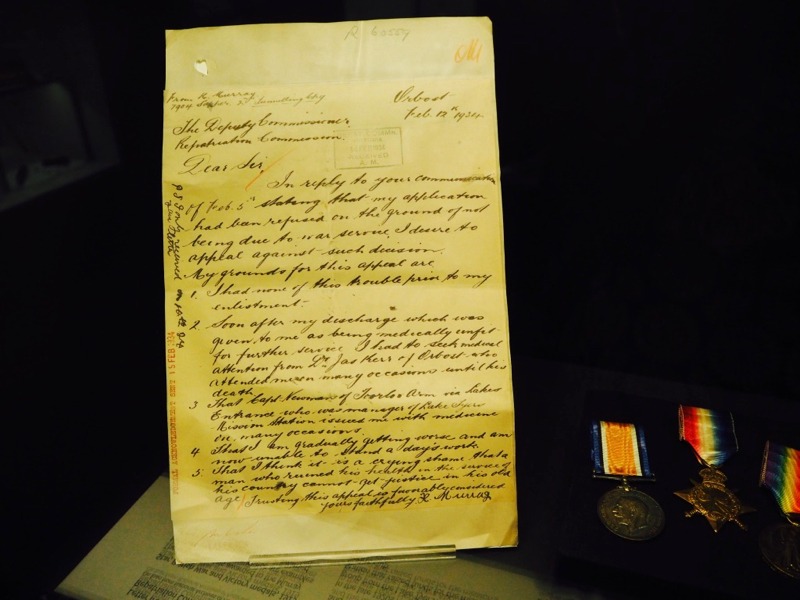 R 60559
From R. Murray
1904 Sapper 3rd Tunnelling Coy
Orbost
Feb. 12th 1934.
The Deputy Commissioner
Repatriation Commission.
RECEIVED
A.M.
Dear Sir,
In reply to your communication
of Feb. 5th stating that my application
had been refused on the ground of not
being due to war service, I desire to
appeal against such decision.
My grounds for this appeal are
1. I had none of this trouble prior to my
enlistment.
2. Soon after my discharge which was
given to me as being medically unfit
for further service, I had to seek medical
attention from Dr Jas Kerr of Orbost who
attended me on many occasions until his
death.
3 That Capt. Newman of Toorloo Arm via Lakes
Entrance who was manager of Lake Tyers
Mission Station issued me with medicine
on many occasions.
4 That I am gradually getting worse and am
now unable to stand a day's work.
5. That I think it is a crying shame that a
man who ruined his health in the service of
his country cannot get justice in his old
age. Trusting this appeal is favorably considered
yours faithfully R. Murray
ACKNOWLEDGEMENT SENT 15 FEB 1934